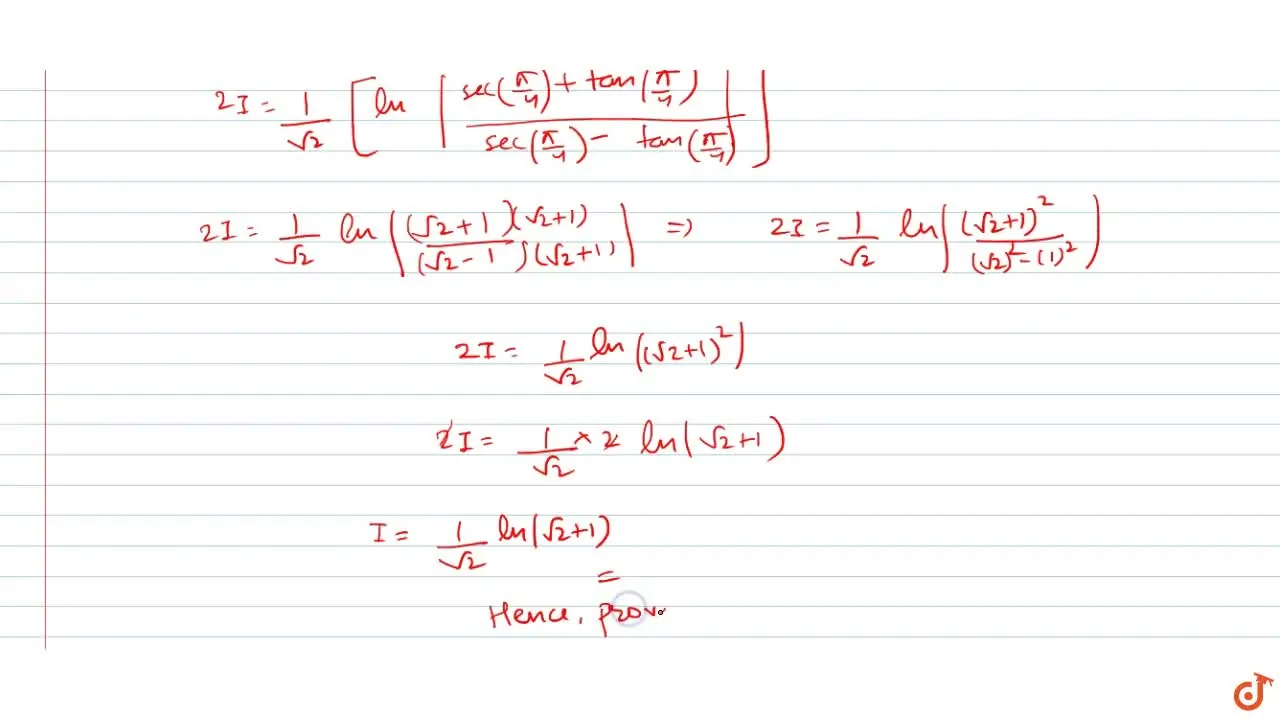 2I = 1/√2 [ ln | sec(π/4) + tan(π/4) / sec(π/4) − tan(π/4) | ]
2I = 1/√2 ln | (√2+1)(√2+1) / (√2−1)(√2+1) | => 2I = 1/√2 ln | (√2+1)² / (√2)² − (1)² )
2I = 1/√2 ln ((√2+1)²)
2I = 1/√2 × 2 ln(√2+1)
I = 1/√2 ln(√2+1)
=
Hence, prov